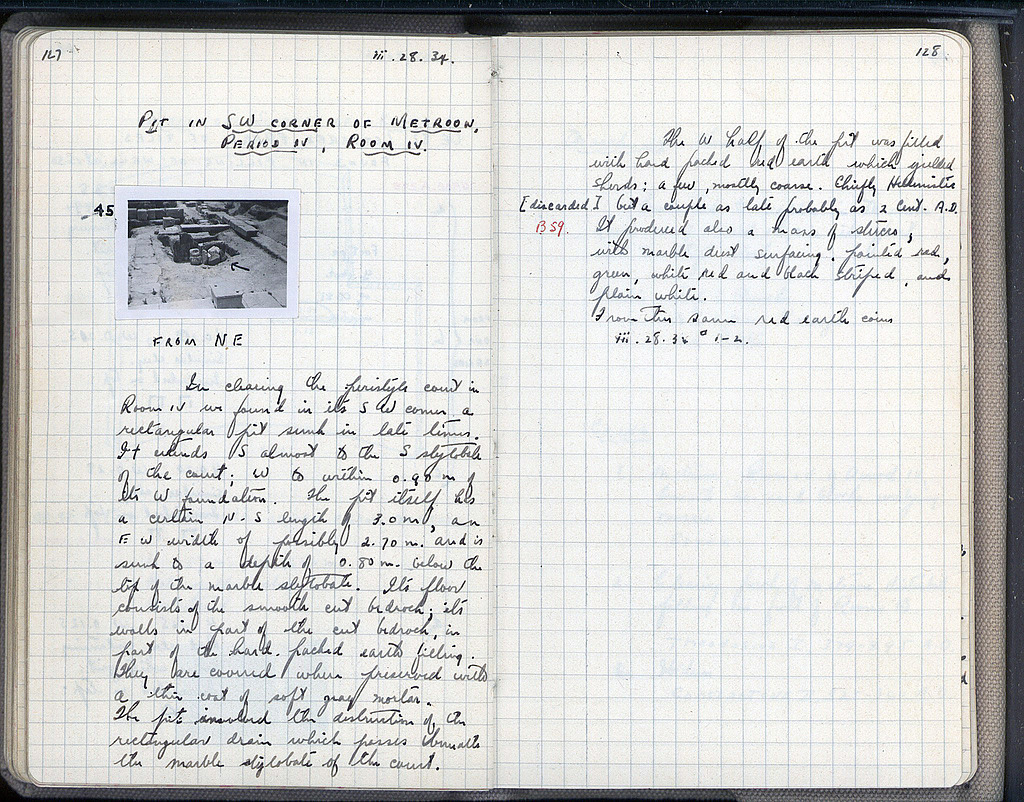 127
iii . 28 . 34.
PIT IN SW CORNER OF METROON,
PERIOD IV, ROOM IV.
45
FROM NE
In clearing the peristyle court in
Room IV we found in its SW corner a
rectangular pit sunk in late times.
It extends S almost to the S stylobate
of the court; W to within 0.90 m of
its W foundation. The pit itself has
a certain N-S length of 3.0 m, an
E W width of possibly 2.70 m. and is
sunk to a depth of 0.80 m. below the
top of the marble stylobate. Its floor
consists of the smooth cut bedrock; its
walls in part of the cut bedrock, in
part of the hard packed earth filling.
They are covered where preserved with
a thin coat of soft gray mortar.
The pit involved the destruction of the
rectangular drain which passes beneath
the marble stylobate of the court.
128
The W half of the pit was filled
with hard packed red earth which yielded
Sherds: a few, mostly coarse. Chiefly Hellenistic
[discarded] but a couple as late probably as 2 Cent. A.D.
B 59. It produced also a mass of stucco,
with marble dust surfacing. painted red,
green, white red and black striped, and
plain white.
From this same red earth coins
iii . 28 . 34 # 1-2.